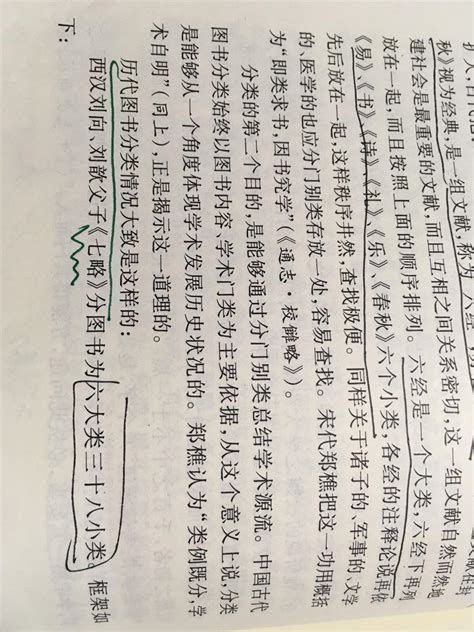 秋》视为经典,是一组文献,称为
献在封
建社会是最重要的文献,而且互相之间关系密切,这一组文献自然而然地
放在一起,而且按照上面的顺序排列。六经是一个大类,六经下再列
《易》、《书》、《诗》、《礼》、《乐》、《春秋》六个小类,各经的注释论说再依
先后放在一起,这样秩序井然,查找极便。同样关于诸子的、军事的、文学
的、医学的也应分门别类存放一处,容易查找。宋代郑樵把这一功用概括
为“即类求书,因书究学”(《通志·校雠略》)。
分类的第二个目的,是能够通过分门别类总结学术源流。中国古代
图书分类始终以图书内容、学术门类为主要依据,从这个意义上说,分类
是能够从一个角度体现学术发展历史状况的。郑樵认为“类例既分,学
术自明”(同上),正是揭示这一道理的。
历代图书分类情况大致是这样的:
西汉刘向、刘歆父子《七略》分图书为六大类三十八小类。框架如
下: